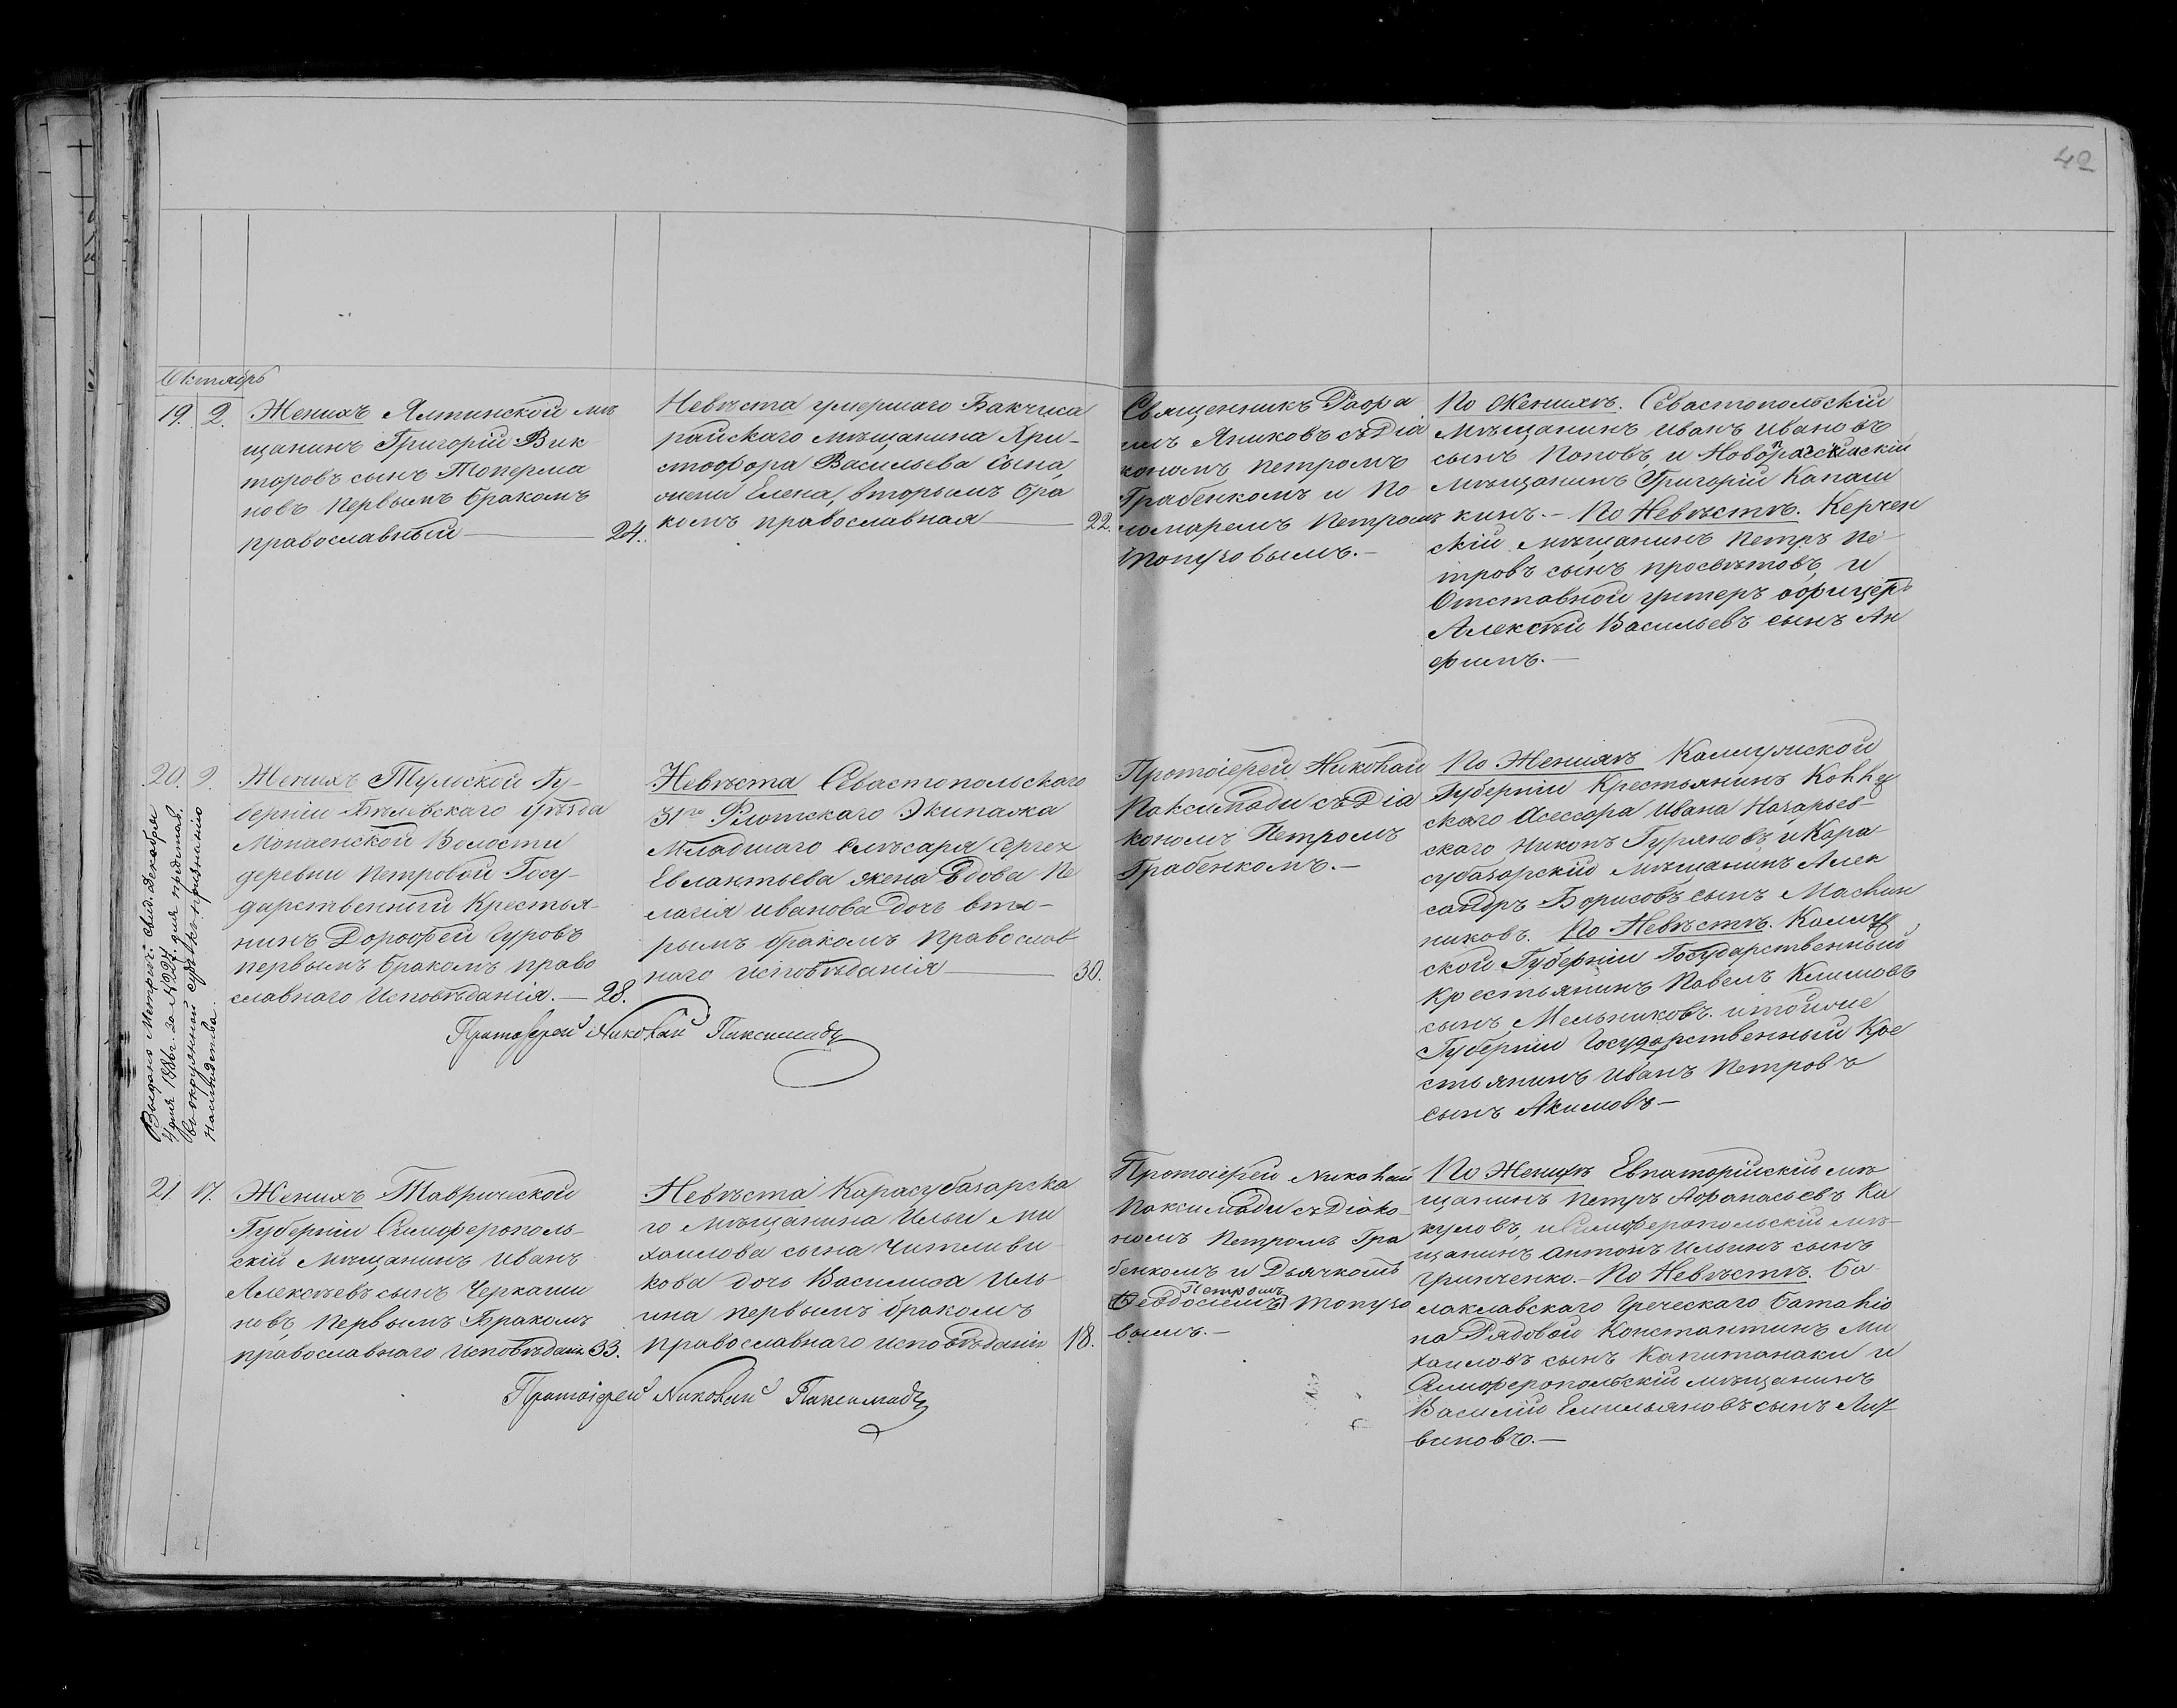 42
Октябрь
19. 2.
Женихъ Ялтинской мѣ
щанинъ Григорій Вик
торовъ сынъ Топерма
новъ первымъ бракомъ
православный — 24.
Невѣста умершаго Бакчиса
райскаго мѣщанина Хри-
стофора Васильева сына,
жена Елена, вторымъ бра
комъ православная — 22.
Священникъ Рафа
илъ Яниковъ съ Діа
кономъ Петромъ
Грабенкомъ и По
номаремъ Петромъ
Топузовымъ.—
По Женихѣ. Севастопольскій
мѣщанинъ Иванъ Ивановъ
сынъ Поповъ, и Новороссійскій
мѣщанинъ Григорій Капаш
кинъ.— По Невѣстѣ. Керчен
скій мѣщанинъ Петръ Пе-
тровъ сынъ Просвѣтовъ, и
Отставной унтеръ офицеръ
Алексѣй Васильевъ сынъ Ан
финъ.—
20. 9.
Женихъ Тульской Гу-
берніи Бѣлевскаго уѣзда
Монаенской Волости
деревни Петровой Госу-
дарственный Крестья-
нинъ Дорофей Гуровъ
первымъ бракомъ право
славнаго Исповѣданія.— 28.
Невѣста Севастопольскаго
31го Флотскаго Экипажа
Младшаго Слѣсаря Сергея
Евлантьева жена вдова Пе
лагія Иванова дочь вто-
рымъ бракомъ Православ
наго исповѣданія — 30.
Протоіерей Николай Паксимади
Протоіерей Николай
Паксимади съ Діа
кономъ Петромъ
Грабенкомъ.—
По Женихѣ Каллужской
Губерніи Крестьянинъ Коллеж
скаго Асессора Ивана Назарьев-
скаго Никонъ Гуряновъ, и Кара
субазарскій мѣщанинъ Алек
сандръ Борисовъ сынъ Маслин
никовъ. По Невѣстѣ. Каллуж
ской Губерніи Государственный
Крестьянинъ Павелъ Климовъ
сынъ Мельниковъ. и той же
Губерніи Государственный Кре
стьянинъ Иванъ Петровъ
сынъ Акимовъ—
Выдано Метрич: свид. Декабря
4 дня 1886 г. за № 227. для представ.
въ окружной судъ къ признанію
наслѣдства.
21. 17.
Женихъ Таврической
Губерніи Симферополь-
скій Мѣщанинъ Иванъ
Алексѣевъ сынъ Черкаши
новъ, первымъ Бракомъ
православнаго Исповѣданія 33.
Невѣста Карасубазарска
го Мѣщанина Ильи Ми
хаилова сына Читливи
кова дочь Василиса Иль
ина первымъ бракомъ
православнаго исповѣданія 18.
Протоіерей Николай Паксимади
Протоіерей Николай
Паксимади съ Діако
номъ Петромъ Гра
бенкомъ и Дьячкомъ
Петромъ
(Ѳеодосіемъ) Топузо
вымъ.—
По Женихѣ Евпаторійскій мѣ
щанинъ Петръ Афанасьевъ Ка
куловъ, и Симферопольскій мѣ-
щанинъ Антонъ Ильинъ сынъ
Гринченко.— По Невѣстѣ. Ба
лаклавскаго Греческаго баталіо
на Рядовой Константинъ Ми
хаиловъ сынъ Капитанаки и
Симферопольскій мѣщанинъ
Василій Емильяновъ сынъ Лит
виновъ.—